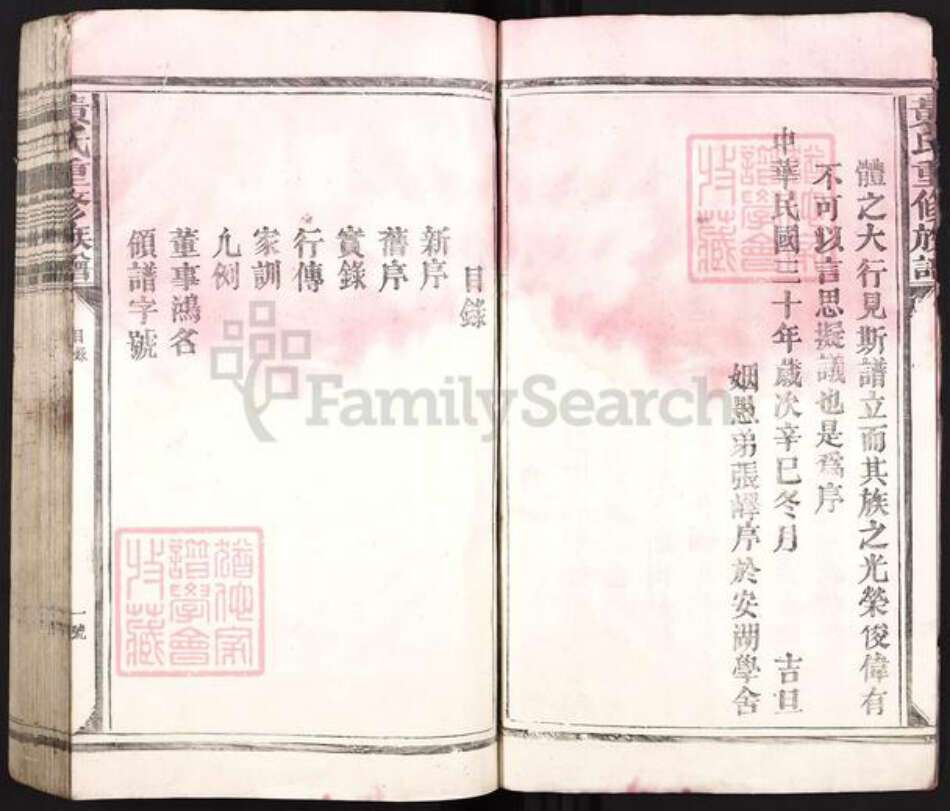 黃氏重修族譜
體之大行見斯譜立而其族之光榮俊偉有
不可以言思擬議也是爲序
中華民國三十年歲次辛巳冬月 吉旦
姻愚弟張 序於安湖學舍
目錄
新序
舊序
實錄
行傳
家訓
凡例
董事鴻名
領譜字號
黃氏重修族譜
目錄
一號
譜學會
收藏
譜學會
收藏
FamilySearch